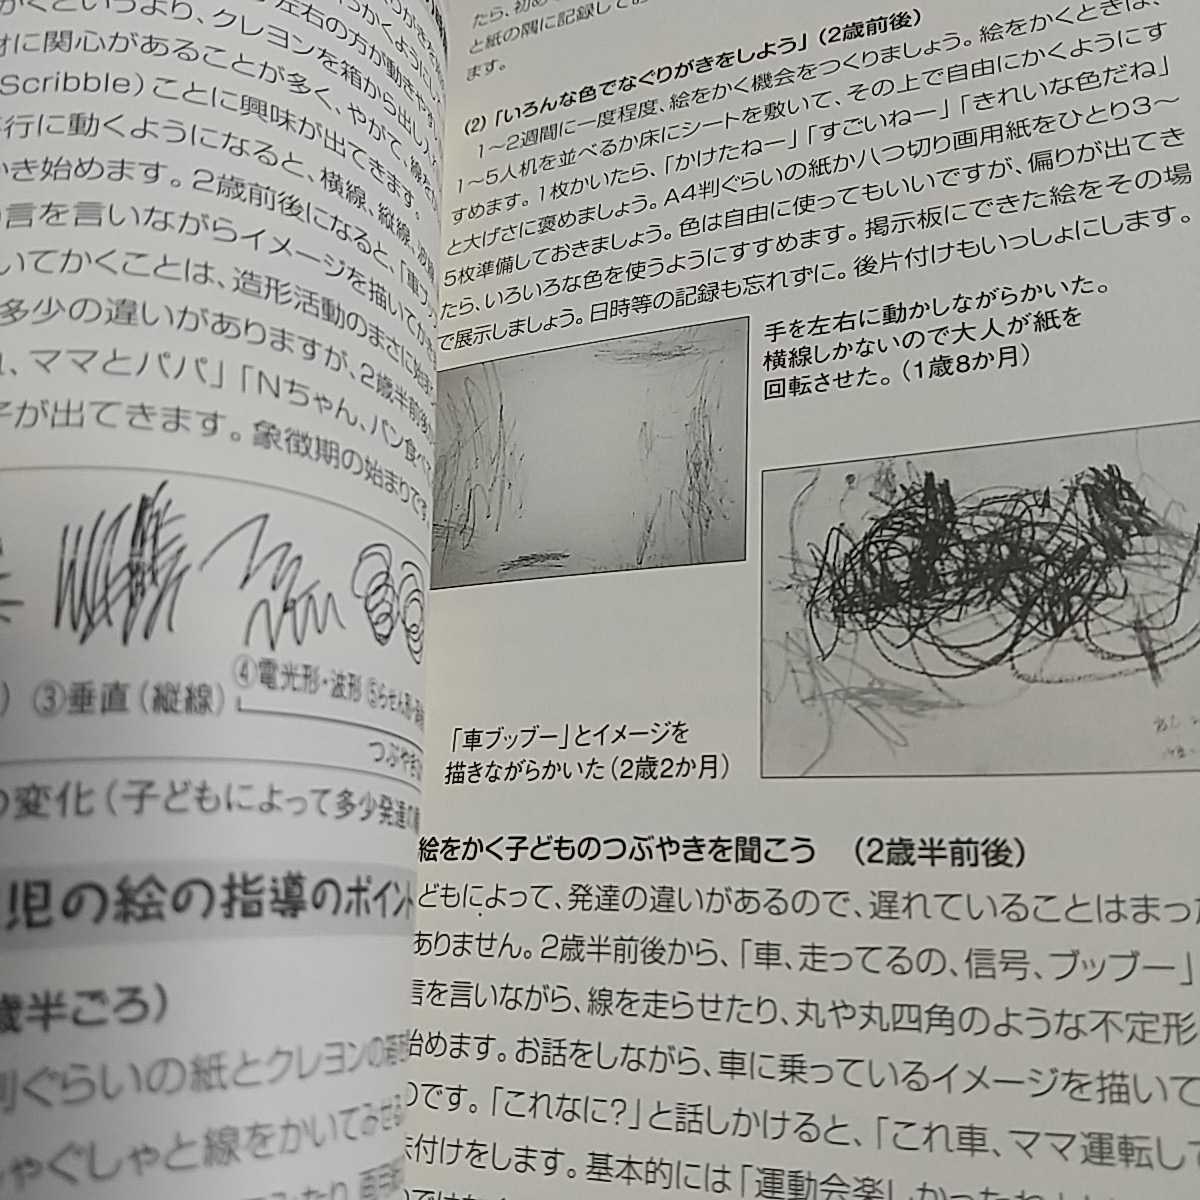 かくというより、クレヨンを箱から出し入れ
材に関心があることが多く、やがて、線を
(Scribble)ことに興味が出てきます。
行に動くようになると、横線、縦線、波線
き始めます。2歳前後になると、「車ブッ
言を言いながらイメージを描いてかき
いてかくことは、造形活動のまさに始まり
多少の違いがありますが、2歳半前後
れ、ママとパパ」「Nちゃん、パン食べて
子が出てきます。象徴期の始まりです
③垂直(縦線)
④電光形・波形
⑤らせん形・
つぶやき
の変化(子どもによって多少発達の
児の絵の指導のポイント
歳半ごろ)
判ぐらいの紙とクレヨンの
しゃぐしゃと線をかいてみせる
たら、初め
と紙の隅に記録してお
ます。
(2)「いろんな色でなぐりがきをしよう」(2歳前後)
1〜2週間に一度程度、絵をかく機会をつくりましょう。絵をかくときは、
1〜5人机を並べるか床にシートを敷いて、その上で自由にかくようにす
すめます。1枚かいたら、「かけたねー」「すごいねー」「きれいな色だね」
と大げさに褒めましょう。A4判ぐらいの紙か八つ切り画用紙をひとり3〜
5枚準備しておきましょう。色は自由に使ってもいいですが、偏りが出てき
たら、いろいろな色を使うようにすすめます。掲示板にできた絵をその場
で展示しましょう。日時等の記録も忘れずに。後片付けもいっしょにします。
手を左右に動かしながらかいた。
横線しかないので大人が紙を
回転させた。(1歳8か月)
「車ブッブー」とイメージを
描きながらかいた(2歳2か月)
絵をかく子どものつぶやきを聞こう (2歳半前後)
どもによって、発達の違いがあるので、遅れていることはまった
ありません。2歳半前後から、「車、走ってるの、信号、ブッブー」
言を言いながら、線を走らせたり、丸や丸四角のような不定形
始めます。お話をしながら、車に乗っているイメージを描いて
のです。「これなに?」と話しかけると、「これ車、ママ運転して
味付けをします。基本的には「運動会楽しかったね」